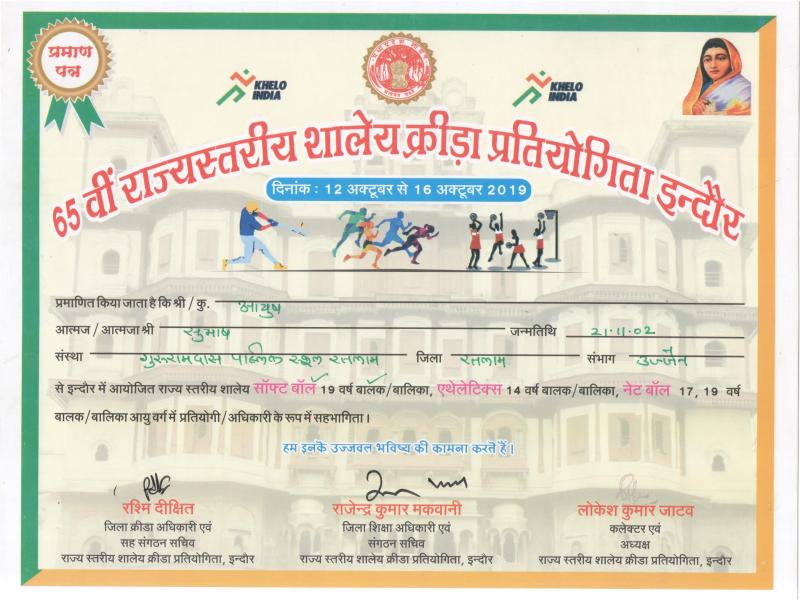 प्रमाण
पत्र
KHELO
INDIA
KHELO
INDIA
65 वीं राज्यस्तरीय शालेय क्रीड़ा प्रतियोगिता इन्दौर
दिनांक : 12 अक्टूबर से 16 अक्टूबर 2019
प्रमाणित किया जाता है कि श्री / कु. आयुष
आत्मज / आत्मजा श्री सुभाष जन्मतिथि 21.11.02
संस्था गुरुरामदास पब्लिक स्कूल रतलाम जिला रतलाम संभाग उज्जैन
से इन्दौर में आयोजित राज्य स्तरीय शालेय सॉफ्ट बॉल 19 वर्ष बालक/बालिका, एथेलेटिक्स 14 वर्ष बालक/बालिका, नेट बॉल 17, 19 वर्ष
बालक/बालिका आयु वर्ग में प्रतियोगी/अधिकारी के रूप में सहभागिता।
हम इनके उज्जवल भविष्य की कामना करते हैं।
रश्मि दीक्षित राजेन्द्र कुमार मकवानी लोकेश कुमार जाटव
जिला क्रीडा अधिकारी एवं जिला शिक्षा अधिकारी एवं कलेक्टर एवं
सह संगठन सचिव संगठन सचिव अध्यक्ष
राज्य स्तरीय शालेय क्रीडा प्रतियोगिता, इन्दौर राज्य स्तरीय शालेय क्रीडा प्रतियोगिता, इन्दौर राज्य स्तरीय शालेय क्रीडा प्रतियोगिता, इन्दौर